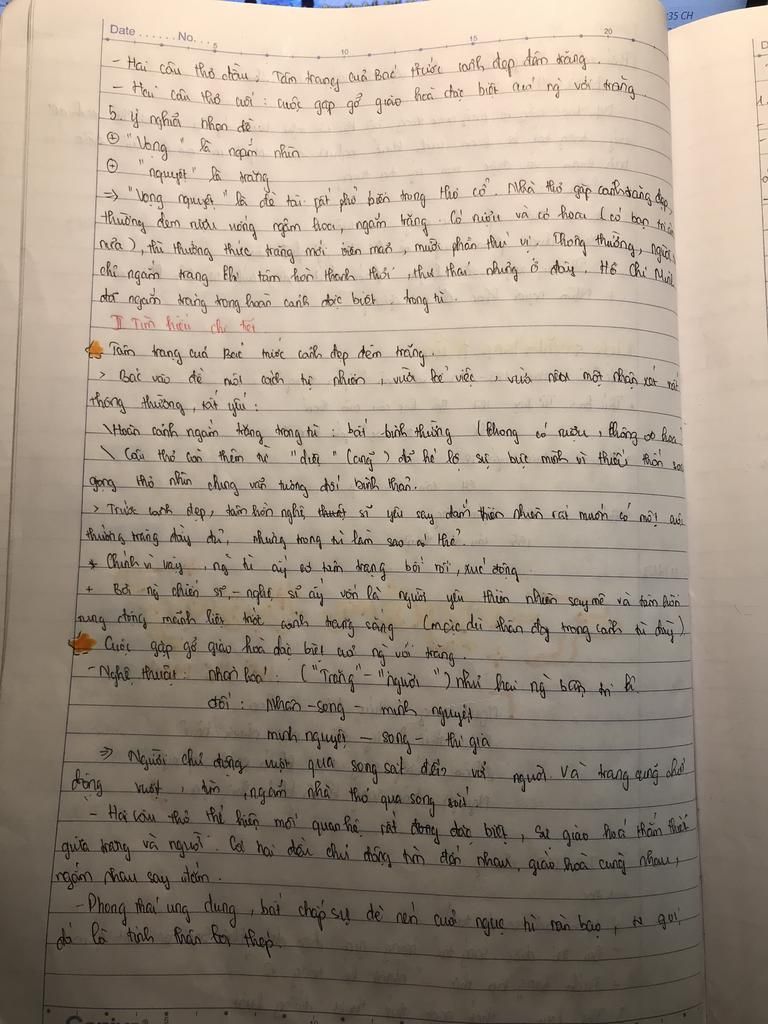 35 CH
Date ...... No. ...
5 10 15 20
- Hai câu thơ đầu: Tâm trạng của Bác trước cảnh đẹp đêm trăng.
- Hai câu thơ cuối: cuộc gặp gỡ giao hoà đặc biệt của ng với trăng
5. ý nghĩa nhan đề:
⊕ "Vọng" là ngắm nhìn
⊕ "nguyệt" là trăng
=> "Vọng nguyệt" là đề tài rất phổ biến trong thơ cổ. Nhà thơ gặp cảnh trăng đẹp,
thường đem rượu uống ngậm hoa, ngắm trăng. Có rượu và có hoa (có bạn tri âm
nữa), thì thưởng thức trăng mới viên mãn, mười phần thú vị. Thông thường, người
chỉ ngắm trăng khi tâm hồn thảnh thơi, thư thái nhưng ở đây, Hồ Chí Minh
đã ngắm trăng trong hoàn cảnh đặc biệt: trong tù.
II Tìm hiểu chi tiết
Tâm trạng của Bác trước cảnh đẹp đêm trăng.
> Bác vào đề một cách tự nhiên, vừa kể việc, vừa nêu một nhận xét rất
thông thường, tất yếu:
\ Hoàn cảnh ngắm trăng trong tù: bất bình thường (không có rượu, không có hoa
\ Câu thơ còn thêm từ "diệc" (cũng) đã hé lộ sự bực mình vì thiếu thốn
giọng thơ nhìn chung vẫn tương đối bình thản.
> Trước cảnh đẹp, tâm hồn nghệ sĩ yêu say đắm thiên nhiên rất muốn có một cuộc
thưởng trăng đầy đủ, nhưng trong tù làm sao có thể.
* Chính vì vậy, ng tù ấy có tâm trạng bối rối, xúc động
+ Bởi ng chiến sĩ - nghệ sĩ ấy vốn là người yêu thiên nhiên say mê và tâm hồn
rung động mãnh liệt trước cảnh trăng sáng (mặc dù thân đang trong cảnh tù đày)
Cuộc gặp gỡ giao hoà đặc biệt của ng với trăng.
- Nghệ thuật: nhân hóa: ("Trăng" - "người") như hai ng bạn tri kỉ.
đối: Nhân - song - minh nguyệt
minh nguyệt - song - thi gia
=> Người chủ động vượt qua song sắt đến với người và trăng cũng chủ
động vượt, tìm, ngắm nhà thơ qua song sắt.
- Hai câu thơ thể hiện mối quan hệ rất đặc biệt, sự giao hoà thắm thiết
giữa trăng và người. Cả hai đều chủ động tìm đến nhau, giao hoà cùng nhau,
ngắm nhau say đắm.
- Phong thái ung dung, bất chấp sự đè nén của ngục tù tàn bạo,
đó là tinh thần thép.